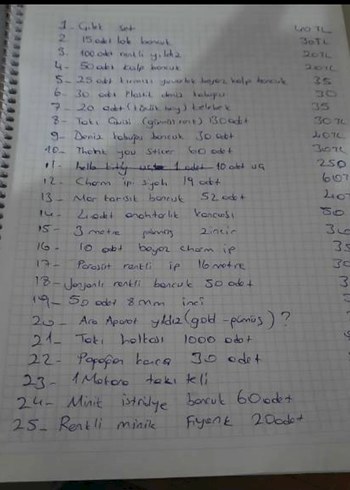 1- Çiçek set 40TL
2- 15 adet boncuk 30TL
3- 100 adet renkli yıldız 20TL
4- 50 adet kalp boncuk 20TL
5- 25 adet kırmızı yuvarlak beyaz kalp boncuk 35
6- 30 adet Plastik deniz kabuğu 30
7- 20 adet kelebek 35
8- Takı Çivisi (gümüş renk) 130 adet 30TL
9- Deniz kabuğu boncuk 30 adet 40TL
10- Thank you Sticer 60 adet 30TL
11- 1 adet 10 adet 250
12- Charm ip siyah 19 adet 60TL
13- Mor boncuk 52 adet
14- 4 adet anahtarlık kancası 50
15- 3 metre gümüş zincir
16- 10 adet beyaz charm ip 35
17- Paraşüt renkli ip 16 metre
18- Janjanlı renkli boncuk 50 adet
19- 50 adet 8mm inci
20- Ara Aparat yıldız (gold - gümüş) ?
21- Takı halkası 1000 adet
22- Papağan kanca 30 adet
23- 1 Makara takı teli
24- Minik istridye boncuk 60 adet
25- Renkli minik Fiyonk 20 adet